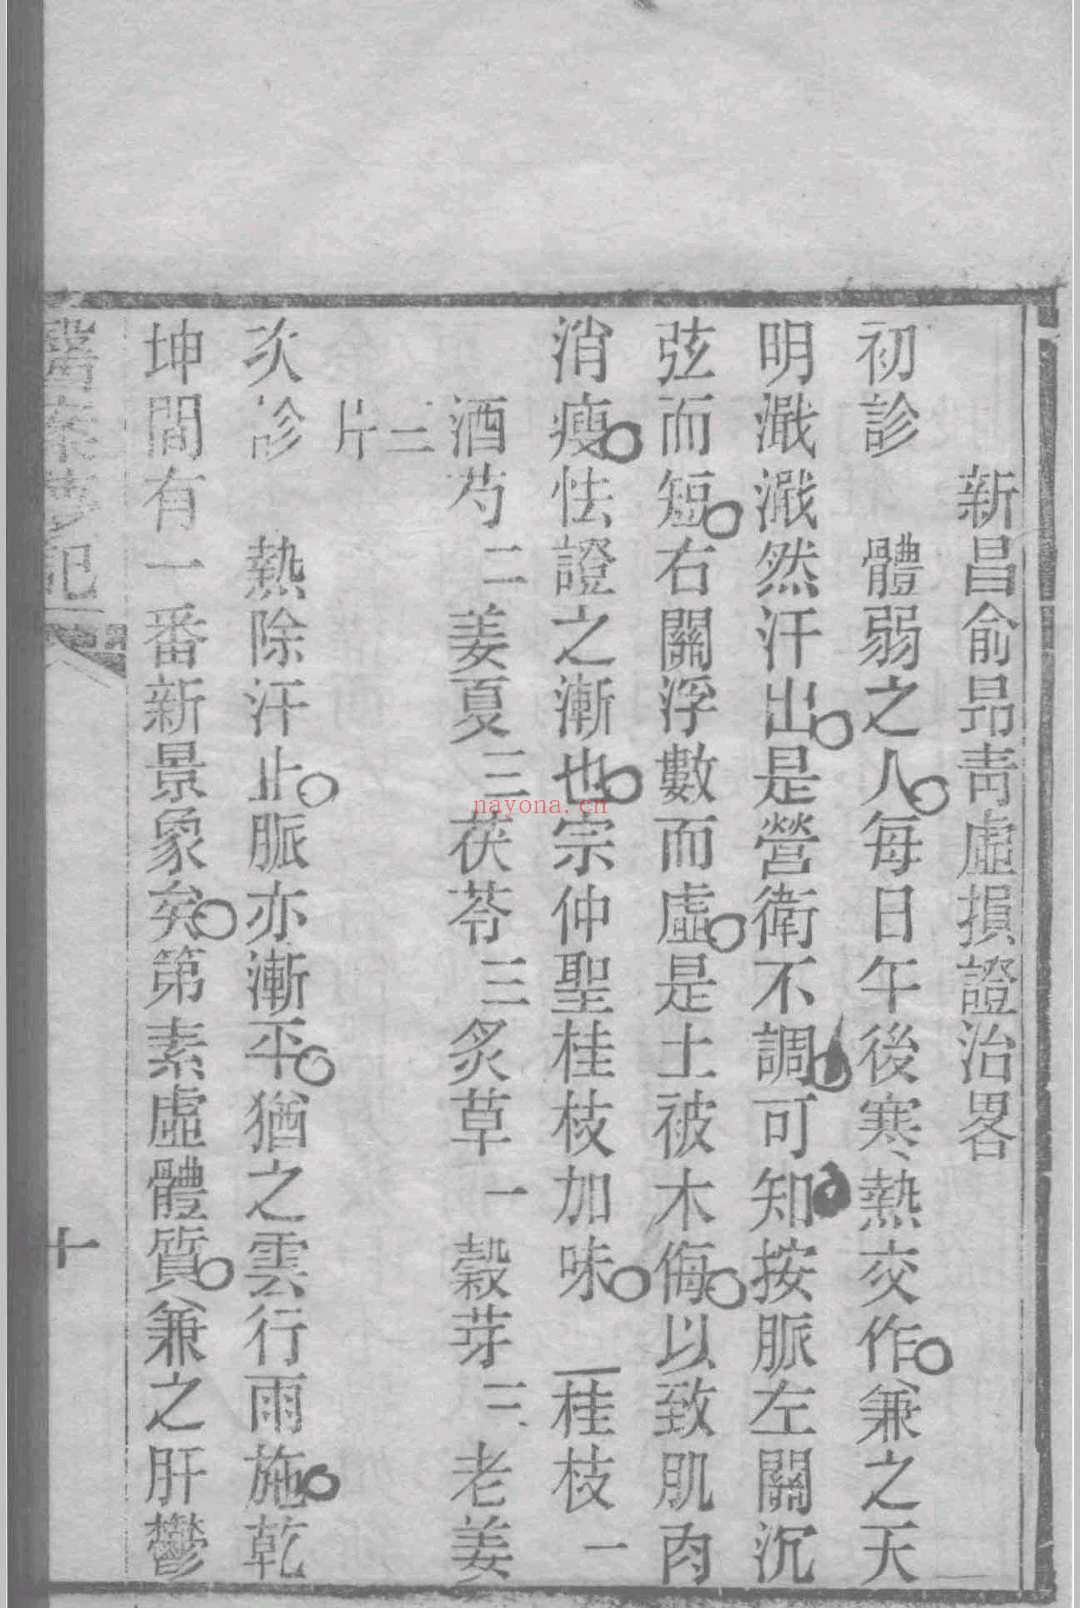 新昌俞昂靑虛損證治畧
初診　體弱之人每日午後寒熱交作兼之天
明濈濈然汗出是營衛不調可知按脈左關沉
弦而短右關浮數而虛是土被木侮以致肌肉
消瘦怯證之漸也宗仲聖桂枝加味　桂枝一
酒芍二姜夏三茯苓三炙草一穀芽三老姜
三片
次診　熱除汗止脈亦漸平猶之雲行雨施乾
坤間有一番新景象矣第素虛體質兼之肝鬱
醫案夢記
十
nayona.cn